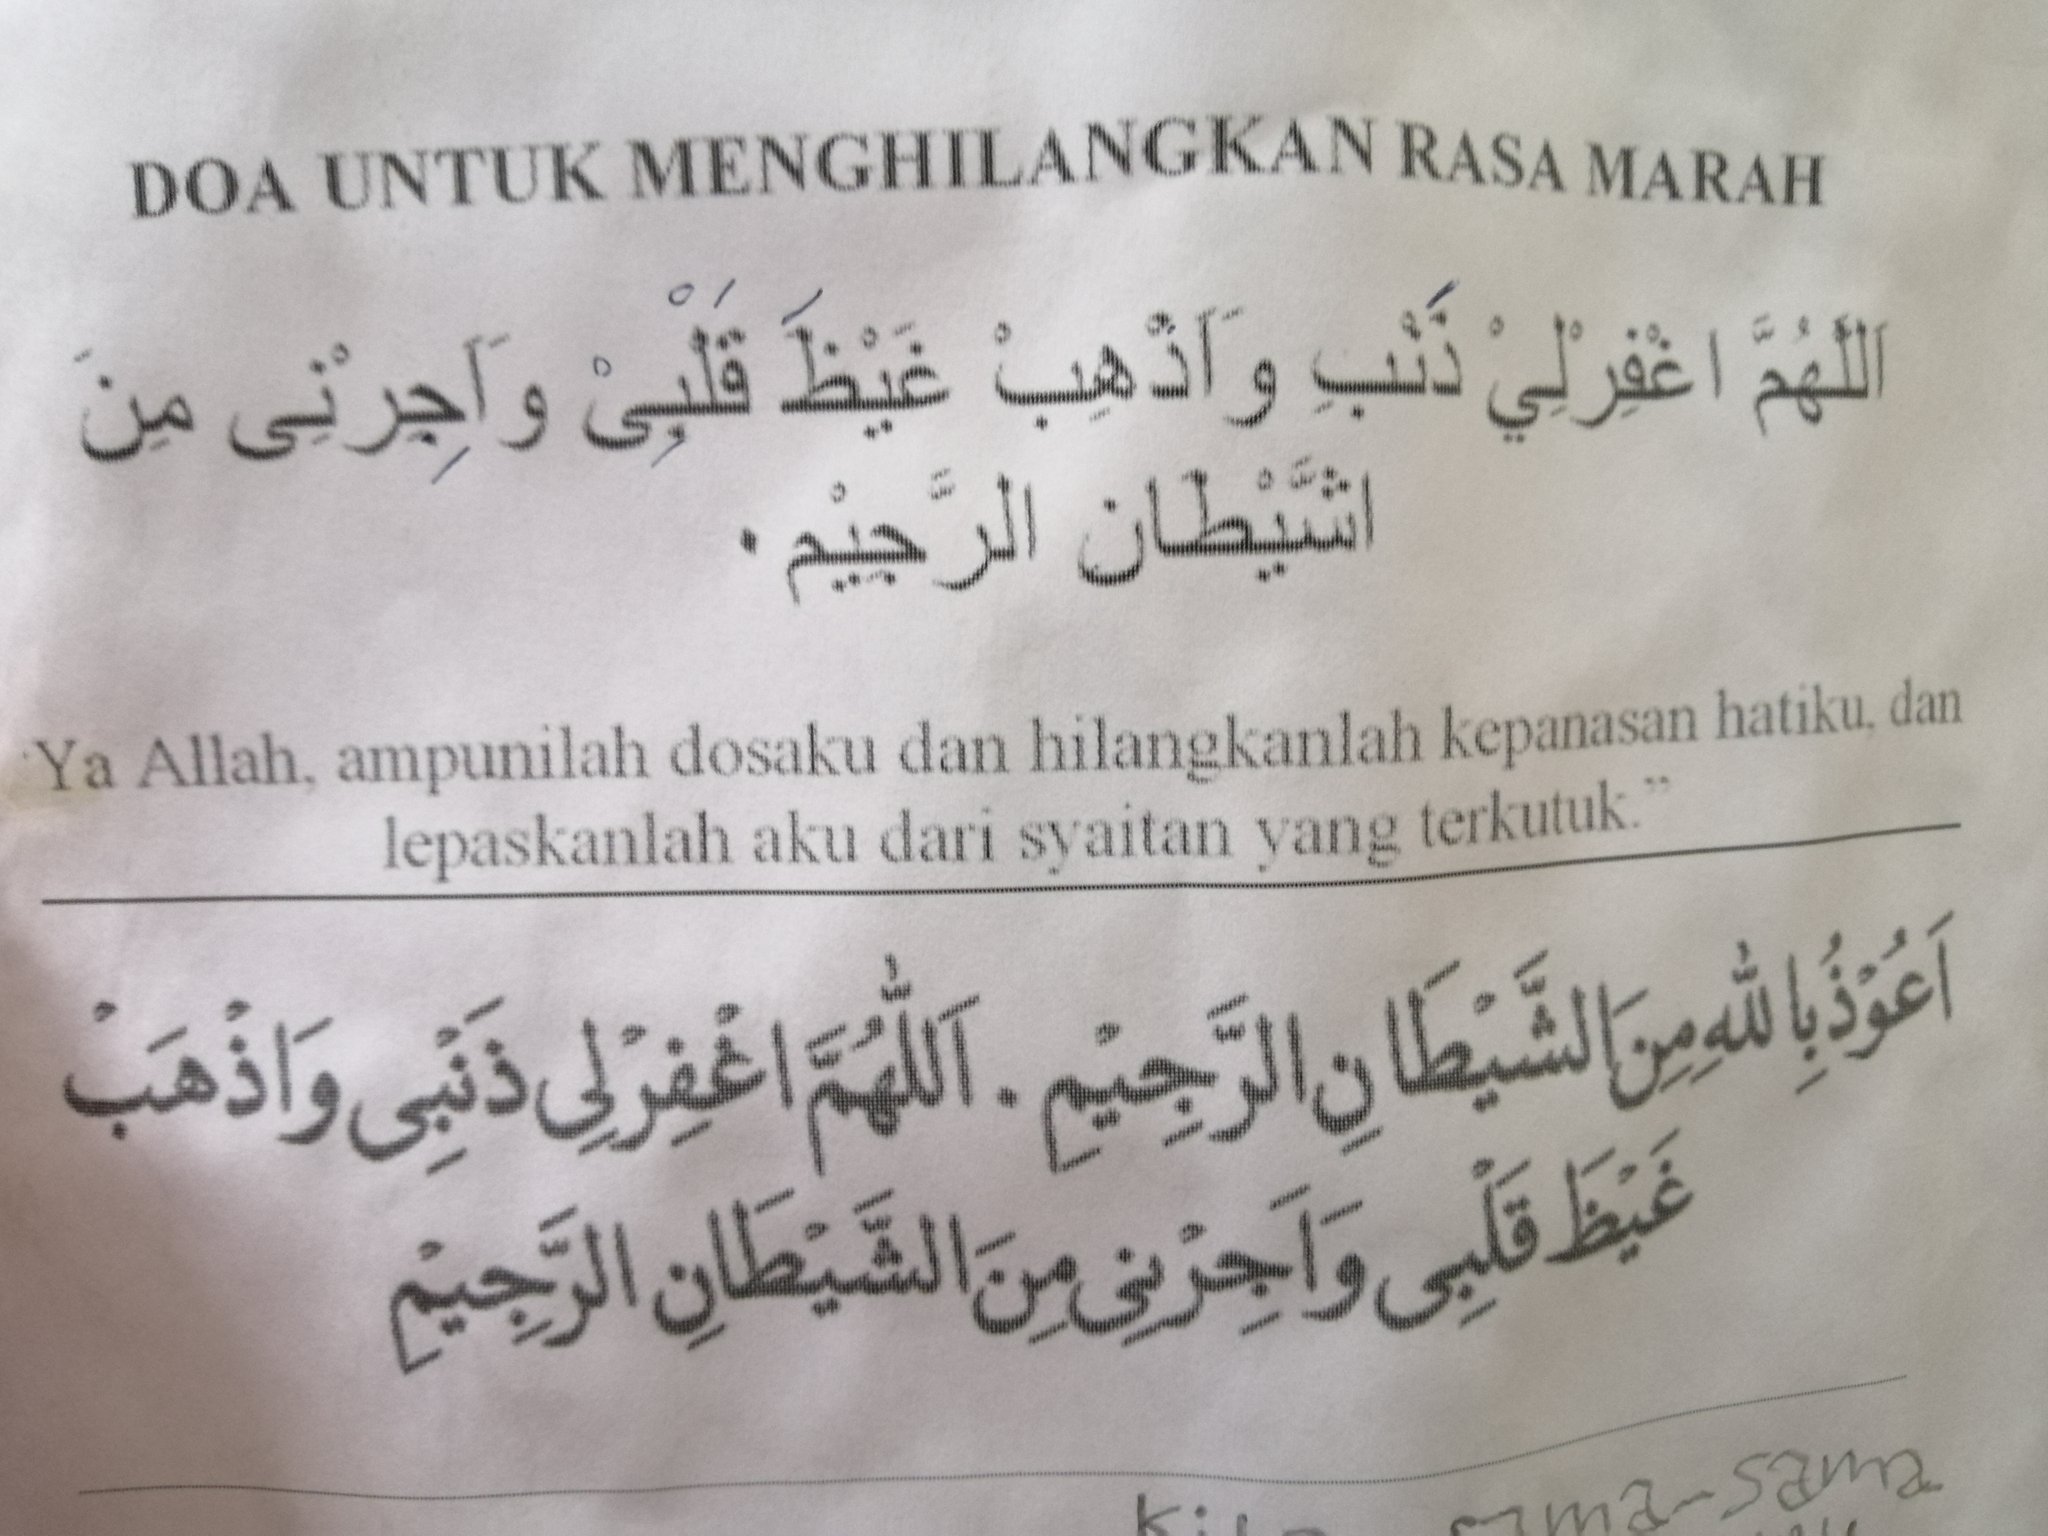 DOA UNTUK MENGHILANGKAN RASA MARAH
اَللَّهُمَّ اغْفِرْلِيْ ذَنْبِ وَاَذْهِبْ غَيْظَ قَلْبِىْ وَاَجِرْنِى مِنَ
اشَّيْطَان الرَّجِيْم.
Ya Allah, ampunilah dosaku dan hilangkanlah kepanasan hatiku, dan
lepaskanlah aku dari syaitan yang terkutuk.”
اَعُوْذُبِاللهِ مِنَ الشَّيْطَانِ الرَّجِيْمِ. اَللّٰهُمَّ اغْفِرْلِى ذَنْبِى وَاذْهَبْ
غَيْظَ قَلْبِى وَاَجِرْنِى مِنَ الشَّيْطَانِ الرَّجِيْمِ
sama-sama